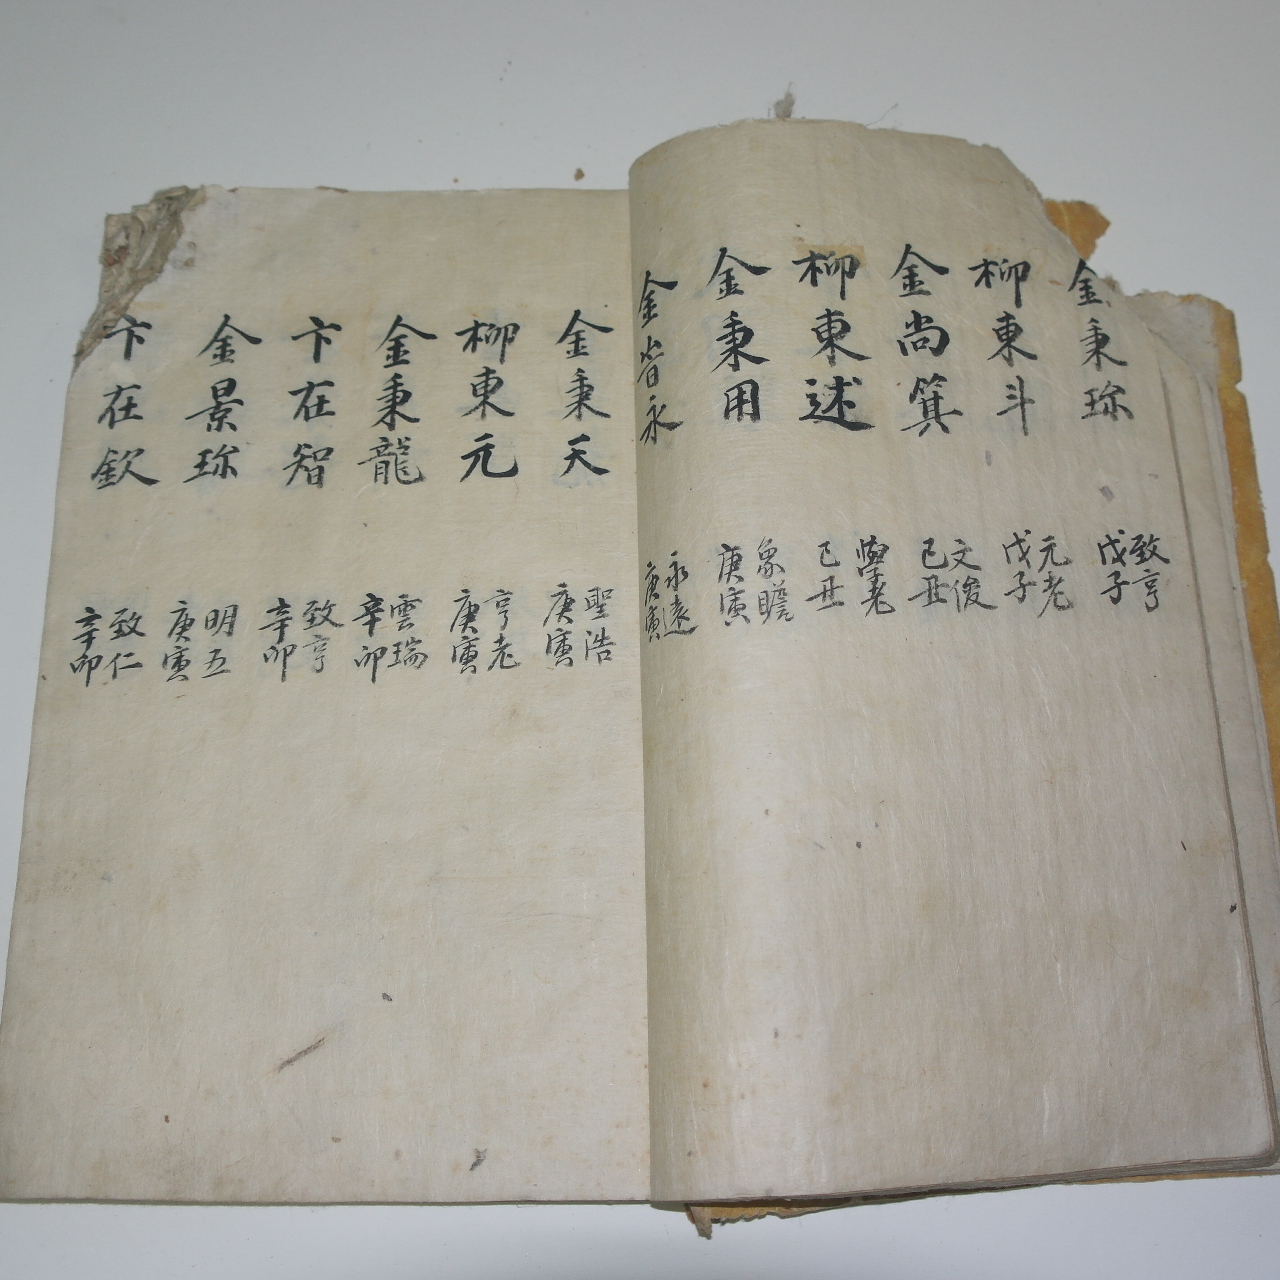 金秉珎
致亨
戊子
柳東斗
元老
戊子
金尚箕
文俊
己丑
柳東述
學老
己丑
金秉用
象瞻
庚寅
金 永
永遠
庚寅
金秉天
聖浩
庚寅
柳東元
亨老
庚寅
金秉龍
雲瑞
辛卯
卞在智
致亨
辛卯
金景珎
明五
庚寅
卞在欽
致仁
辛卯